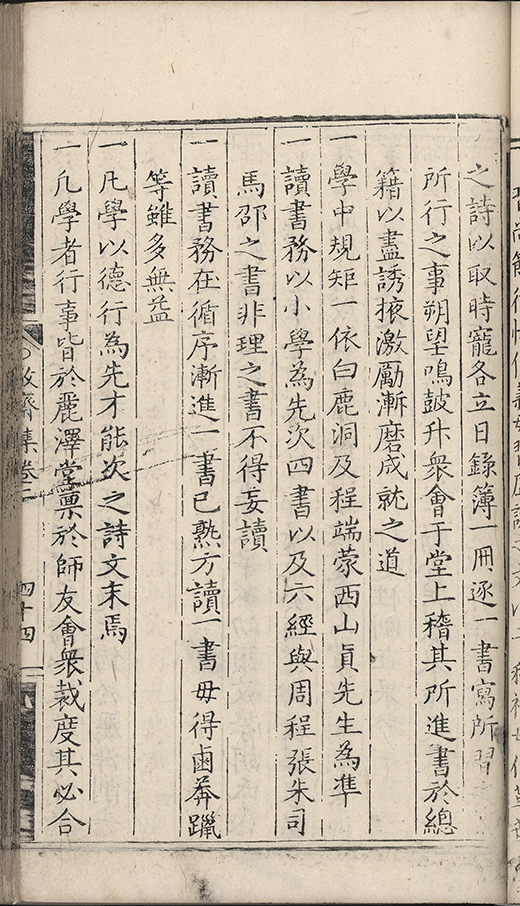 之詩以取時寵各立日錄簿一冊逐一書寫所習
所行之事朔望鳴鼓升衆會于堂上稽其所進書於總
籍以盡誘掖激勵漸磨成就之道
一學中規矩一依白鹿洞及程端蒙西山眞先生為準
一讀書務以小學為先次四書以及六經與周程張朱司
馬邵之書非理之書不得妄讀
一讀書務在循序漸進一書已熟方讀一書毋得鹵莽躐
等雖多無益
一凡學以德行為先才能次之詩文末焉
一凡學者行事皆於麗澤堂禀於師友會衆裁度其必合
敬齋集卷二 四十四